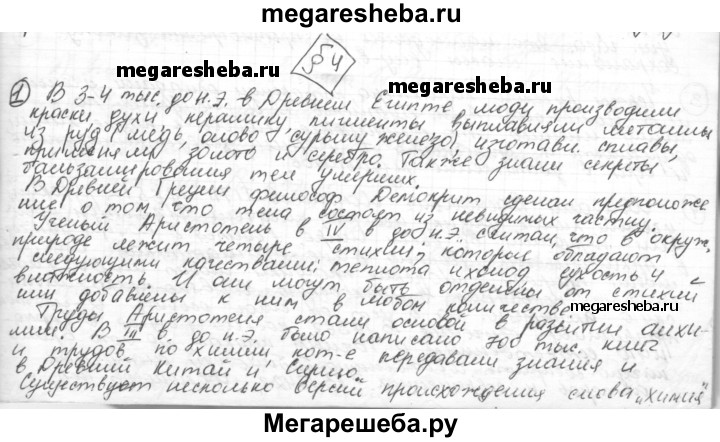 megaresheba.ru
§ 4
megaresheba.ru
megaresheba.ru
1 В 3-4 тыс. до н.э. в Древнем Египте люди производили
краски, духи, керамику, пигменты, выплавляли металлы
из руд: медь, олово, сурьму, железо, изготавл. сплавы,
применяли золото и серебро. Также знали секреты
бальзамирования тел умерших.
В Древней Греции философ Демокрит сделал предположе
ние о том, что тела состоят из невидимых частиц.
Ученый Аристотель в IV в до н.э. считал, что в окруж.
природе лежит четыре стихии, которые обладают
следующими качествами: теплота и холод, сухость и
влажность. И они могут быть отделены от стихии
или добавлены к ним в любом количестве.
megaresheba.ru
Труды Аристотеля стали основой в развитии алхи-
мии. В III в. до н.э. было написано 70 тыс. книг
и трудов по химии, кот-е передавали знания и
в Древний Китай и Сирию.
Существует несколько версий происхождения слова "химия"
Мегарешеба.ру